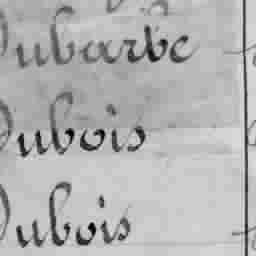 Dubarbe
Dubois
Dubois